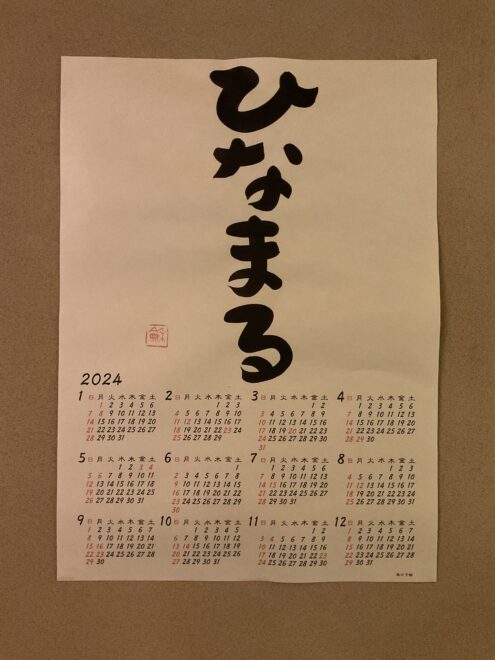 ひなまる
2024
1 日 月 火 水 木 金 土
1 2 3 4 5 6
7 8 9 10 11 12 13
14 15 16 17 18 19 20
21 22 23 24 25 26 27
28 29 30 31
2 日 月 火 水 木 金 土
1 2 3
4 5 6 7 8 9 10
11 12 13 14 15 16 17
18 19 20 21 22 23 24
25 26 27 28 29
3 日 月 火 水 木 金 土
1 2
3 4 5 6 7 8 9
10 11 12 13 14 15 16
17 18 19 20 21 22 23
24 25 26 27 28 29 30
31
4 日 月 火 水 木 金 土
1 2 3 4 5 6
7 8 9 10 11 12 13
14 15 16 17 18 19 20
21 22 23 24 25 26 27
28 29 30
5 日 月 火 水 木 金 土
1 2 3 4
5 6 7 8 9 10 11
12 13 14 15 16 17 18
19 20 21 22 23 24 25
26 27 28 29 30 31
6 日 月 火 水 木 金 土
1
2 3 4 5 6 7 8
9 10 11 12 13 14 15
16 17 18 19 20 21 22
23 24 25 26 27 28 29
30
7 日 月 火 水 木 金 土
1 2 3 4 5 6
7 8 9 10 11 12 13
14 15 16 17 18 19 20
21 22 23 24 25 26 27
28 29 30 31
8 日 月 火 水 木 金 土
1 2 3
4 5 6 7 8 9 10
11 12 13 14 15 16 17
18 19 20 21 22 23 24
25 26 27 28 29 30 31
9 日 月 火 水 木 金 土
1 2 3 4 5 6 7
8 9 10 11 12 13 14
15 16 17 18 19 20 21
22 23 24 25 26 27 28
29 30
10 日 月 火 水 木 金 土
1 2 3 4 5
6 7 8 9 10 11 12
13 14 15 16 17 18 19
20 21 22 23 24 25 26
27 28 29 30 31
11 日 月 火 水 木 金 土
1 2
3 4 5 6 7 8 9
10 11 12 13 14 15 16
17 18 19 20 21 22 23
24 25 26 27 28 29 30
12 日 月 火 水 木 金 土
1 2 3 4 5 6 7
8 9 10 11 12 13 14
15 16 17 18 19 20 21
22 23 24 25 26 27 28
29 30 31